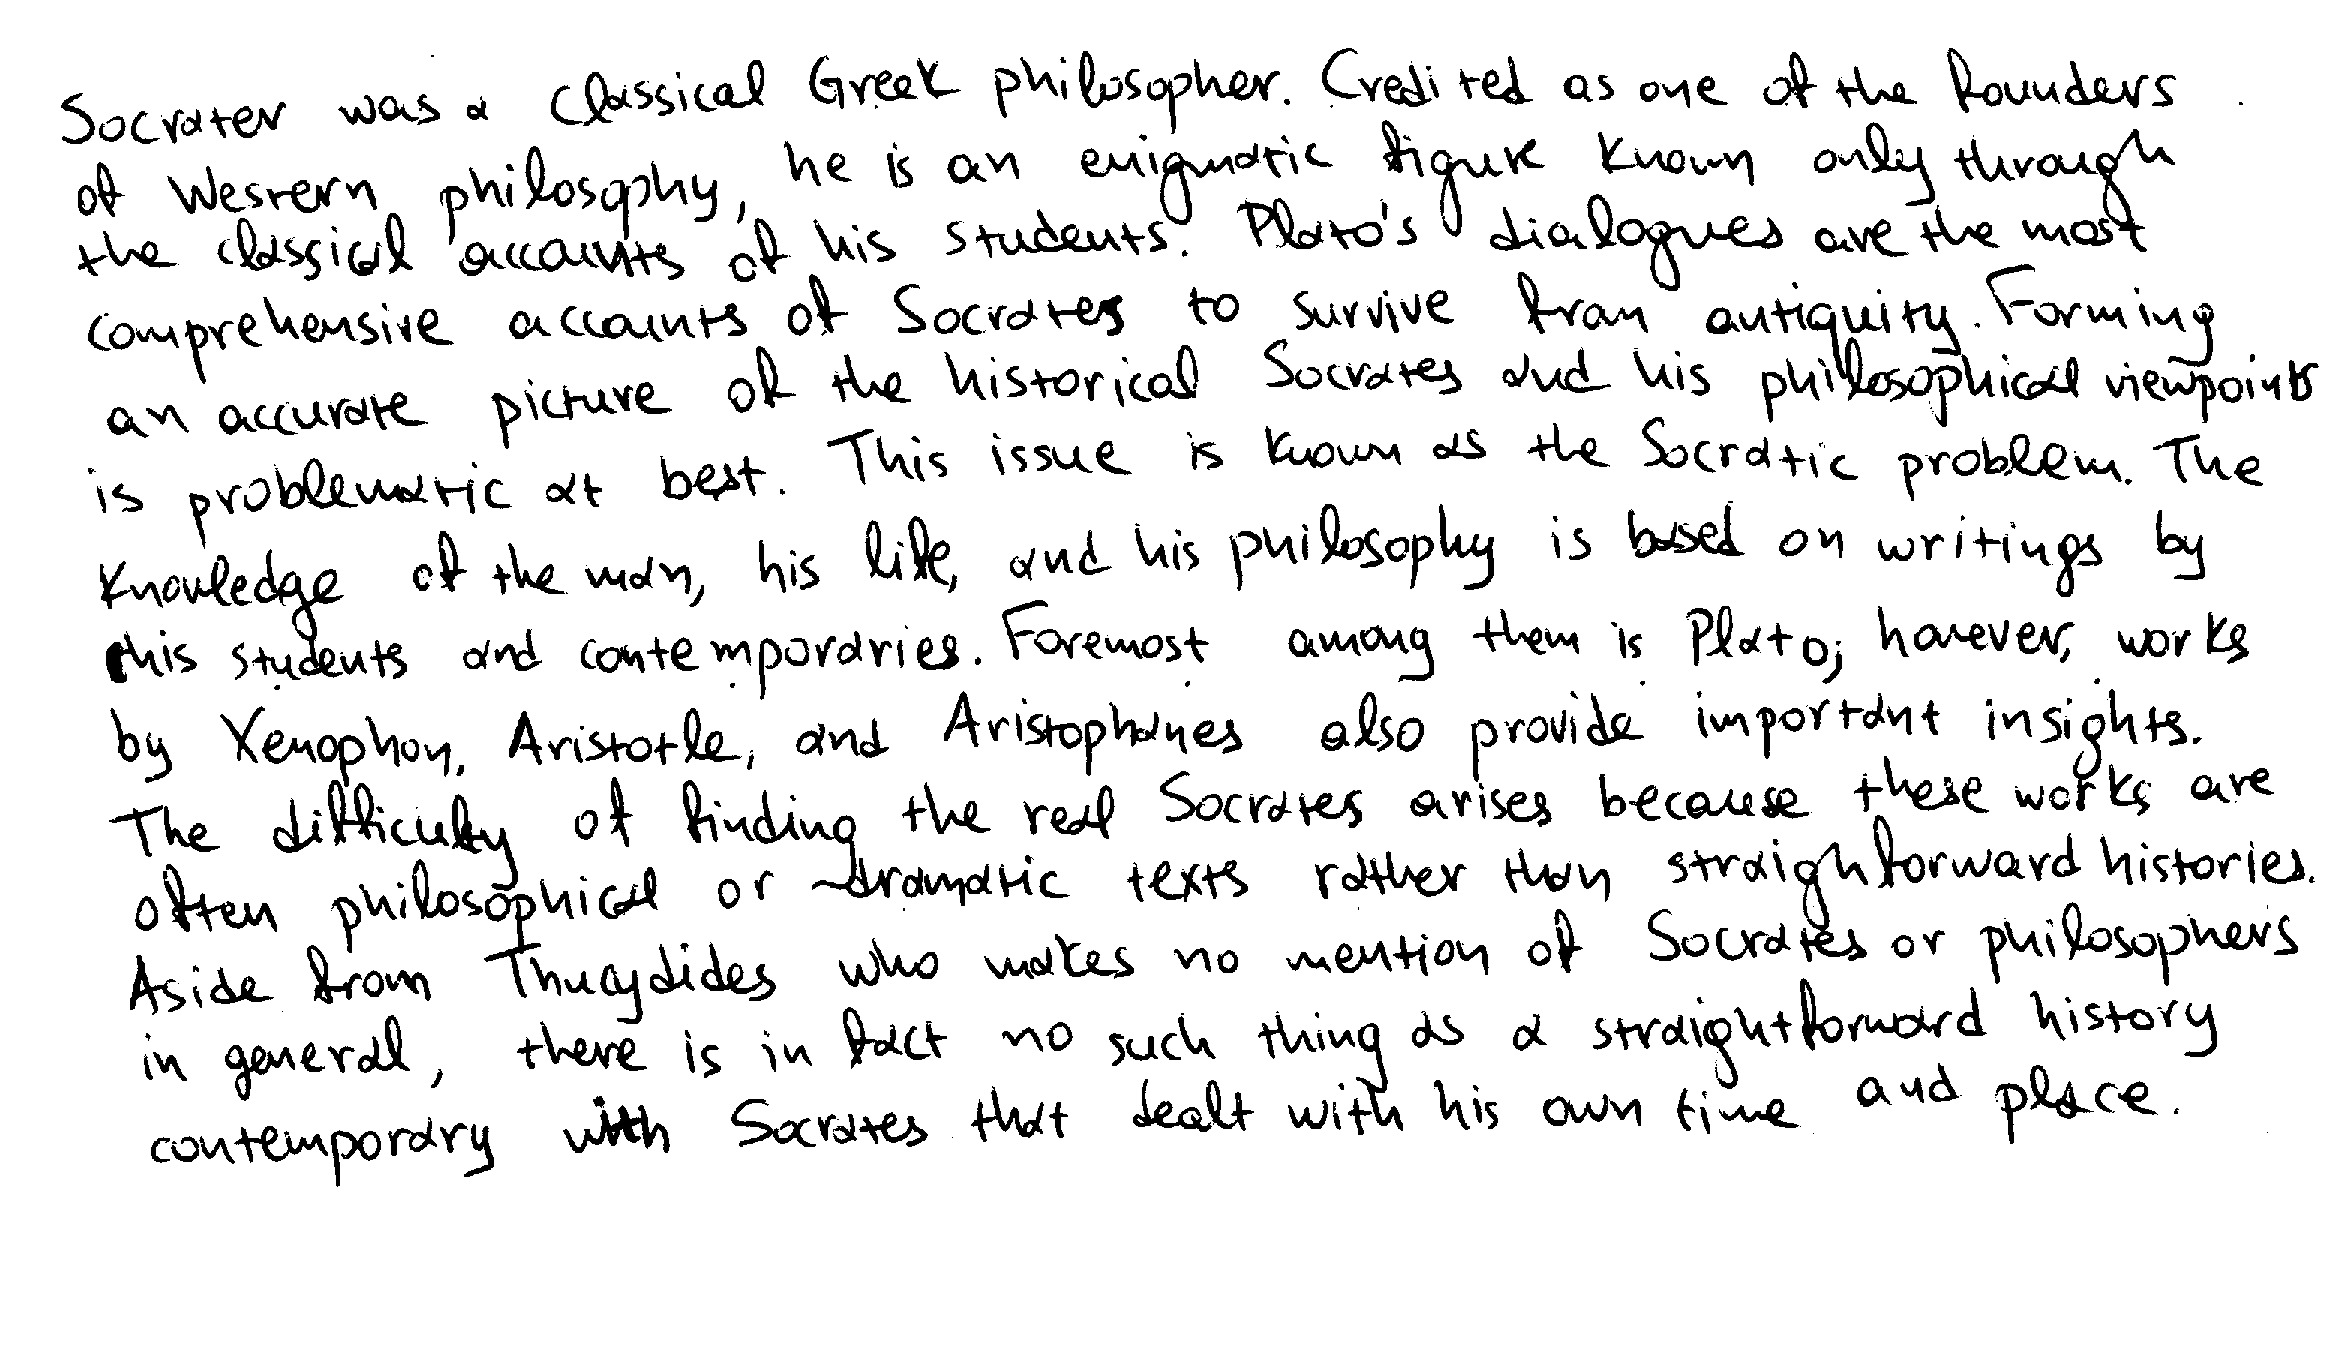 Socrater was a Classical Greek philosopher. Credited as one of the founders
of Western philosophy, he is an enigmatic figure known only through
the classical accounts of his students. Plato's dialogues are the most
comprehensive accounts of Socrates to survive from antiquity. Forming
an accurate picture of the historical Socrates and his philosophical viewpoints
is problematic at best. This issue is known as the Socratic problem. The
knowledge of the man, his life, and his philosophy is based on writings by
his students and contemporaries. Foremost among them is Plato; however, works
by Xenophon, Aristotle, and Aristophanes also provide important insights.
The difficulty of finding the real Socrates arises because these works are
often philosophical or dramatic texts rather than straighforward histories.
Aside from Thucydides who makes no mention of Socrates or philosophers
in general, there is in fact no such thing as a straightforward history
contemporary with Socrates that dealt with his own time and place.